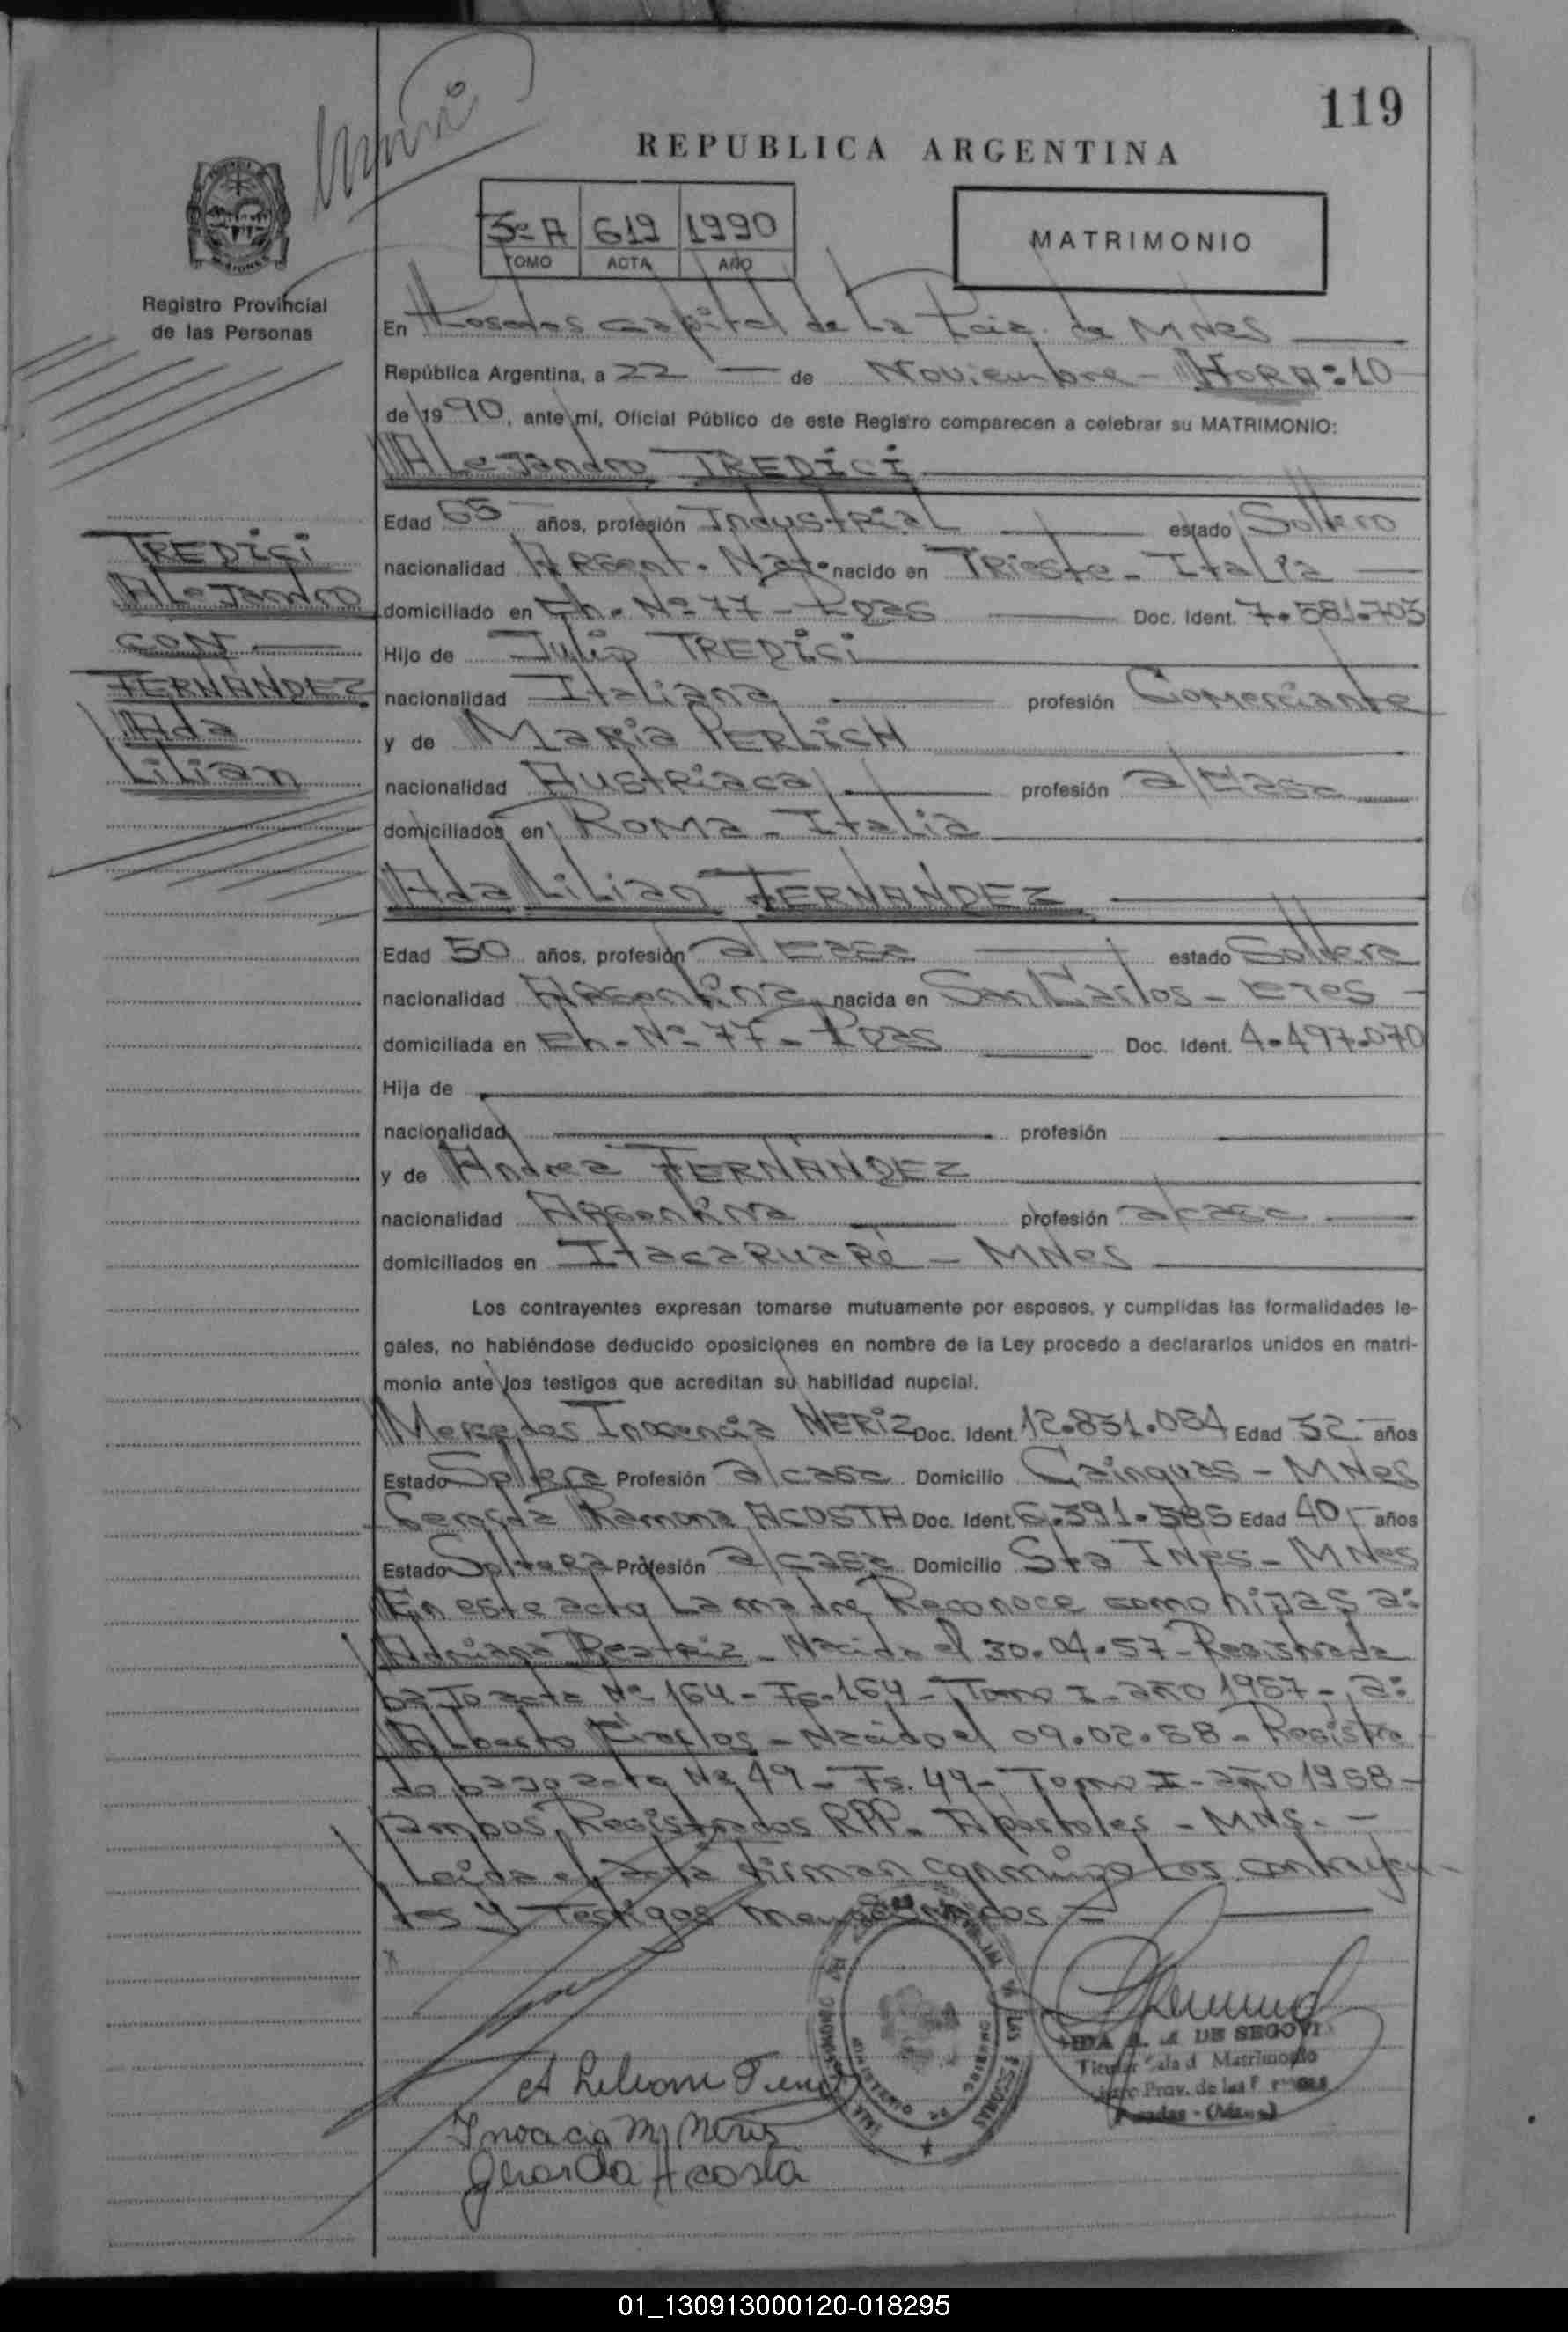 119
REPUBLICA ARGENTINA
3º A 619 1990
TOMO ACTA AÑO
MATRIMONIO
Registro Provincial
de las Personas
En Posadas Capital de La Pcia. de MNes
República Argentina, a 22 de Noviembre - HORA: 10
de 1990, ante mí, Oficial Público de este Registro comparecen a celebrar su MATRIMONIO:
Alejandro TREDICI
Edad 65 años, profesión Industrial estado Soltero
nacionalidad Argent. Nat. nacido en Trieste - Italia
domiciliado en Ch. Nº 77 - Pdas Doc. Ident. 7.581.703
Hijo de Julio TREDICI
nacionalidad Italiana profesión Comerciante
y de Maria PERLICH
nacionalidad Austriaca profesión a/casa
domiciliados en Roma - Italia
TREDICI
Alejandro
con
FERNANDEZ
Ada
Lilian
Ada Lilian FERNANDEZ
Edad 50 años, profesión a/casa estado Soltera
nacionalidad Argentina nacida en San Carlos - Ctes
domiciliada en Ch. Nº 77 - Pdas Doc. Ident. 4.497.070
Hija de
nacionalidad profesión
y de Andrea FERNANDEZ
nacionalidad Argentina profesión a/casa
domiciliados en Itacaruaré - MNes
Los contrayentes expresan tomarse mutuamente por esposos, y cumplidas las formalidades le-
gales, no habiéndose deducido oposiciones en nombre de la Ley procedo a declararlos unidos en matri-
monio ante los testigos que acreditan su habilidad nupcial.
Mercedes Inocencia NERIZ Doc. Ident. 12.831.084 Edad 32 años
Estado Soltera Profesión a/casa Domicilio Cainguas - MNes
Gerarda Ramona ACOSTA Doc. Ident. 6.391.585 Edad 40 años
Estado Soltera Profesión a/casa Domicilio Sta Ines - MNes
En este acto La madre Reconoce como hijas a:
Adriana Beatriz - Nacida el 30.04.57 - Registrada
bajo acta Nº 164 - Fº 164 - Tomo I - año 1957 - a:
Alberto Carlos - Nacido el 09.02.58 - Registra
do bajo acta Nº 49 - Fº. 49 - Tomo I - año 1958 -
ambos Registrados RPP. Apostoles - MNs. -
Leida el acta firman conmigo Los contrayen-
tes y Testigos mencionados =
A Liliam Fern
Inocencia M Neris
Gerarda Acosta
DE SEGOVI
Titular Sala d Matrimonio
Prov. de las P
Posadas - (Mnes)
01_130913000120-018295